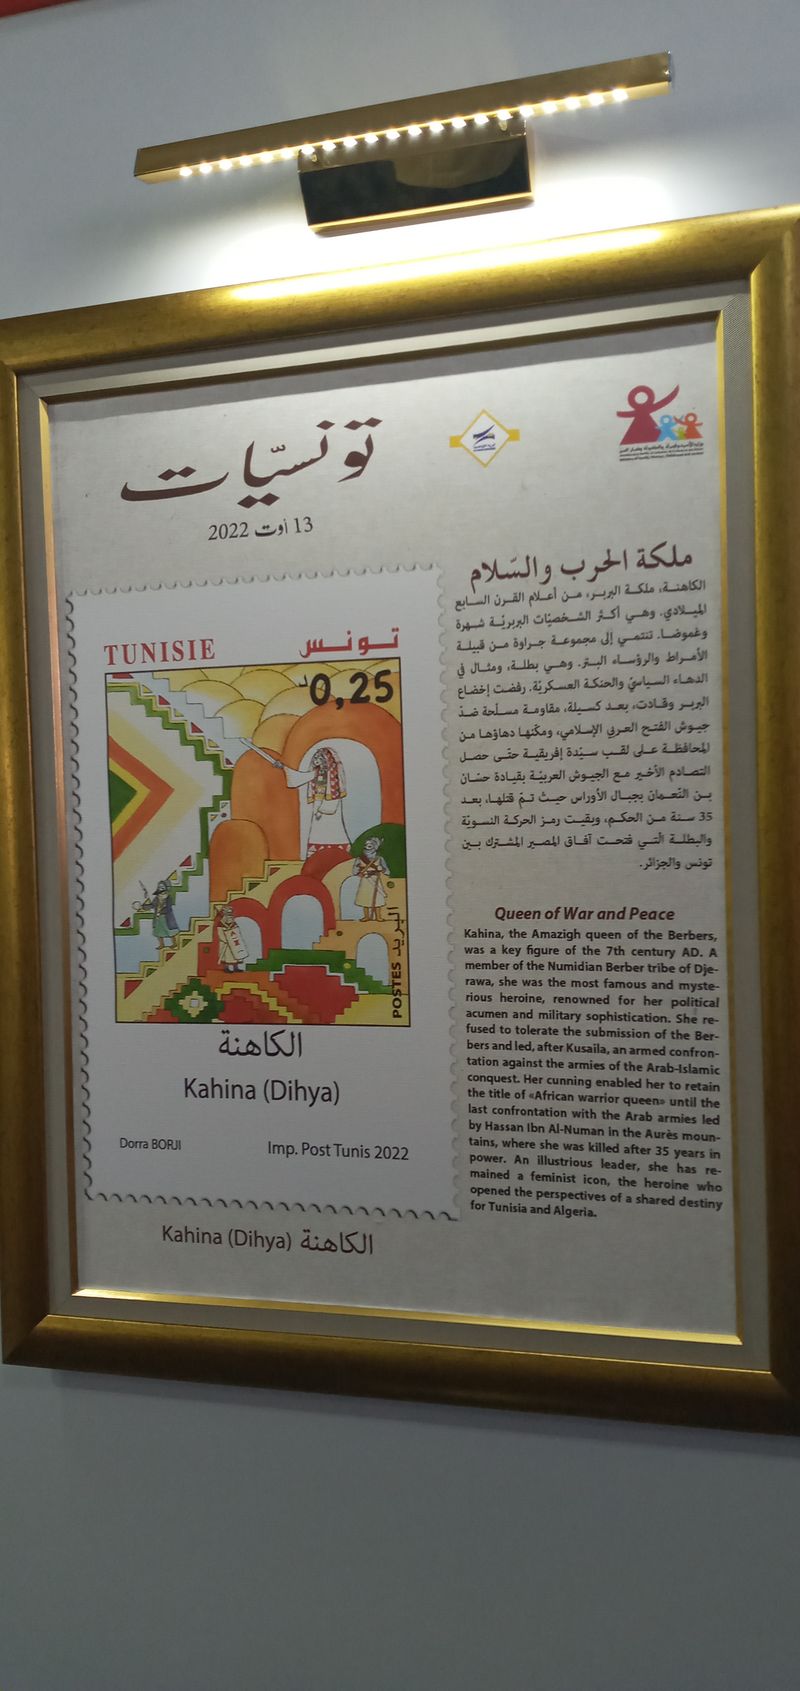 تونسيّات
13 أوت 2022
TUNISIE
تونس
0,25د
البريد POSTES
الكاهنة
Kahina (Dihya)
Dorra BORJI
Imp. Post Tunis 2022
Kahina (Dihya) الكاهنة
ملكة الحرب والسّلام
الكاهنة، ملكة البربر، من أعلام القرن السابع
الميلادي. وهي أكثر الشخصيّات البربريّة شهرة
وغموضا. تنتمي إلى مجموعة جراوة من قبيلة
الأمراط والرؤساء البتر. وهي بطلة، ومثال في
الدهاء السياسيّ والحنكة العسكريّة. رفضت إخضاع
البربر وقادت، بعد كسيلة، مقاومة مسلّحة ضدّ
جيوش الفتح العربي الإسلامي، ومكّنها دهاؤها من
المحافظة على لقب سيّدة إفريقية حتّى حصل
التصادم الأخير مع الجيوش العربيّة بقيادة حسّان
بن النّعمان بجبال الأوراس حيث تمّ قتلها، بعد
35 سنة من الحكم، وبقيت رمز الحركة النسويّة
والبطلة الّتي فتحت آفاق المصير المشترك بين
تونس والجزائر.
Queen of War and Peace
Kahina, the Amazigh queen of the Berbers,
was a key figure of the 7th century AD. A
member of the Numidian Berber tribe of Dje-
rawa, she was the most famous and myste-
rious heroine, renowned for her political
acumen and military sophistication. She re-
fused to tolerate the submission of the Ber-
bers and led, after Kusaila, an armed confron-
tation against the armies of the Arab-Islamic
conquest. Her cunning enabled her to retain
the title of «African warrior queen» until the
last confrontation with the Arab armies led
by Hassan Ibn Al-Numan in the Aurès moun-
tains, where she was killed after 35 years in
power. An illustrious leader, she has re-
mained a feminist icon, the heroine who
opened the perspectives of a shared destiny
for Tunisia and Algeria.